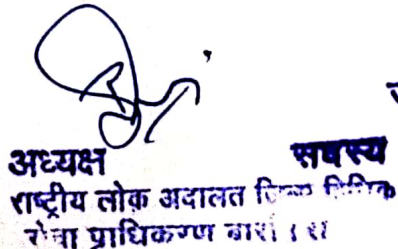 अध्यक्ष सदस्य
राष्ट्रीय लोक अदालत जिला विधिक
सेवा प्राधिकरण बारां